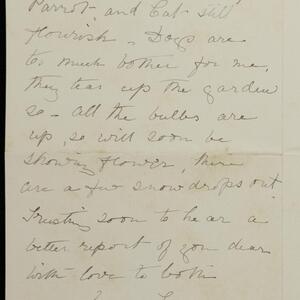 Parrot and Cat still
flourish - Dogs are
to much bother for me,
they tear up the garden
so - all the bulbs are
up, so will soon be
showing flower, there
are a few snowdrops out
Trusting soon to hear a
better report of you dear
with love to both